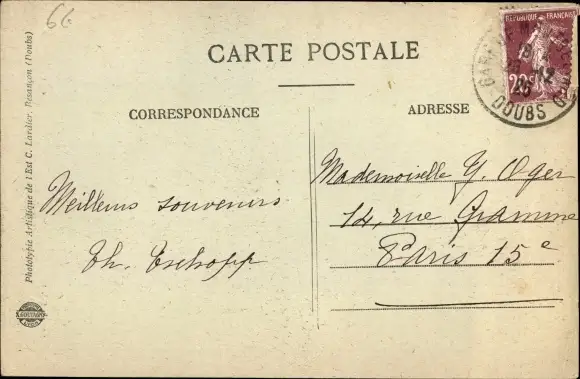 66
CARTE POSTALE
CORRESPONDANCE
ADRESSE
Meilleurs souvenirs
Th. Eschopp
Mademoiselle Y. Oger
14, rue Gramme
Paris 15e
Phototypie Artistique de l'Est C. Lardier, Besançon (Doubs)
RÉPUBLIQUE FRANÇAISE
DOUBS